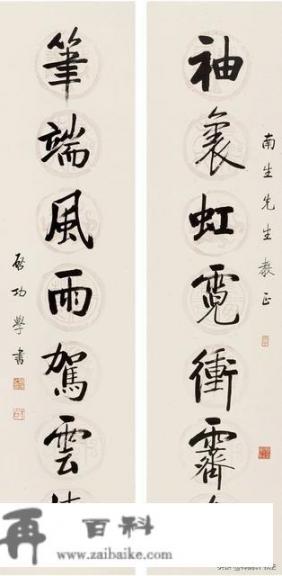 南生先生教正
袖裏虹霓衝霽
筆端風雨駕雲
啟功學書
再百科
www.zaibaike.com